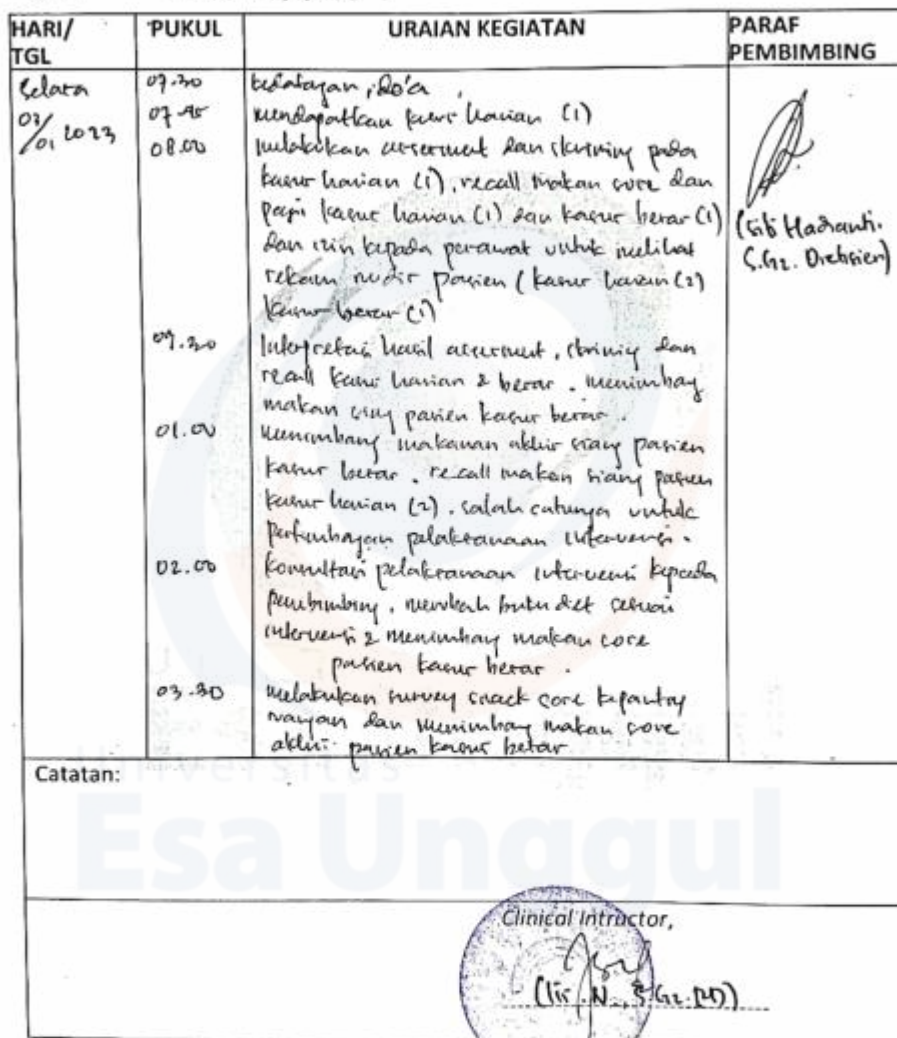 HARI/
TGL
PUKUL
URAIAN KEGIATAN
PARAF
PEMBIMBING
Selasa
03/01 2023
07.30 kedatangan, do'a,
07.45 mendapatkan kasus harian (1)
08.00 melakukan assesment dan skrining pada
kasus harian (1), recall makan sore dan
pagi kasus harian (1) dan kasus besar (1)
dan izin kepada perawat untuk melihat
rekam medis pasien (kasus harian (2)
kasus besar (1)
(Siti Hadianti.
S.Gz. Dietisien)
09.30 Interpretasi hasil assesment, skrining dan
recall kasus harian & besar. menimbang
makan siang pasien kasus besar.
01.00 menimbang makanan akhir siang pasien
kasus besar. recall makan siang pasien
kasus harian (2). salah satunya untuk
pelaksanaan intervensi.
02.00 konsultasi pelaksanaan intervensi kepada
pembimbing, merubah diet sesuai
intervensi & menimbang makan sore
pasien kasus besar.
03.30 melakukan survey snack sore kepantry
ruangan dan menimbang makan sore
akhir pasien kasus besar
Catatan:
Universitas
Esa Unggul
Clinical Intructor,
N., S.Gz. (RD))